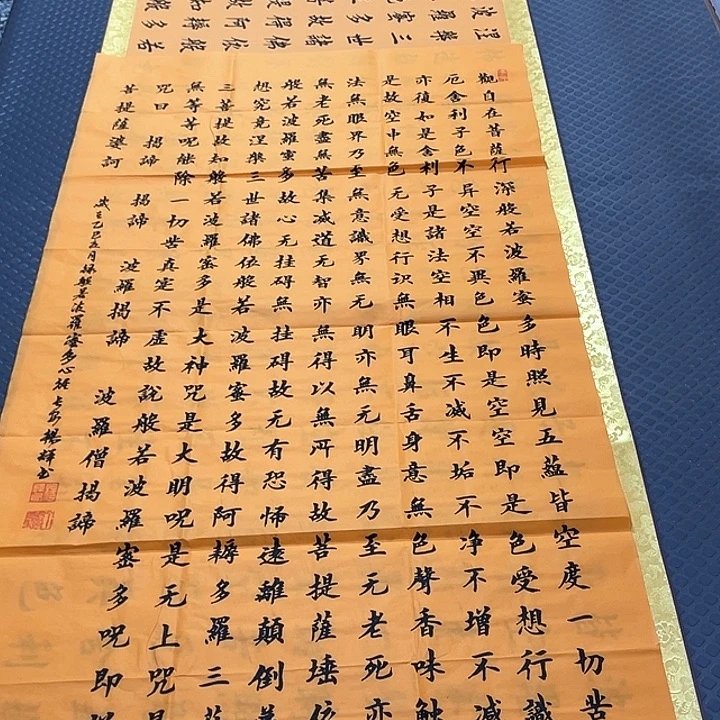 觀自在菩薩行深般若波羅蜜多時照見五蘊皆空度一切苦
厄舍利子色不异空空不異色色即是空空即是色受想行識
亦復如是舍利子是諸法空相不生不滅不垢不净不增不減
是故空中無色无受想行识無眼耳鼻舌身意無色聲香味觸
法無眼界乃至無意識界無无明亦無无明盡乃至无老死亦
無老死盡無苦集滅道无智亦無得以無所得故菩提薩埵依
般若波羅蜜多故心无挂碍無挂碍故无有恐怖遠離顛倒
想究竟涅槃三世諸佛依般若波羅蜜多故得阿耨多羅三藐
三菩提故知般若波羅蜜多是大神咒是大明呪是无上咒是
無等等呪能除一切苦真实不虚故説般若波羅蜜多呪即説
咒曰 揭諦 揭諦 波羅揭諦 波羅僧揭諦
菩提薩婆訶
乙巳五月録般若波羅蜜多心經 长安 楊輝書